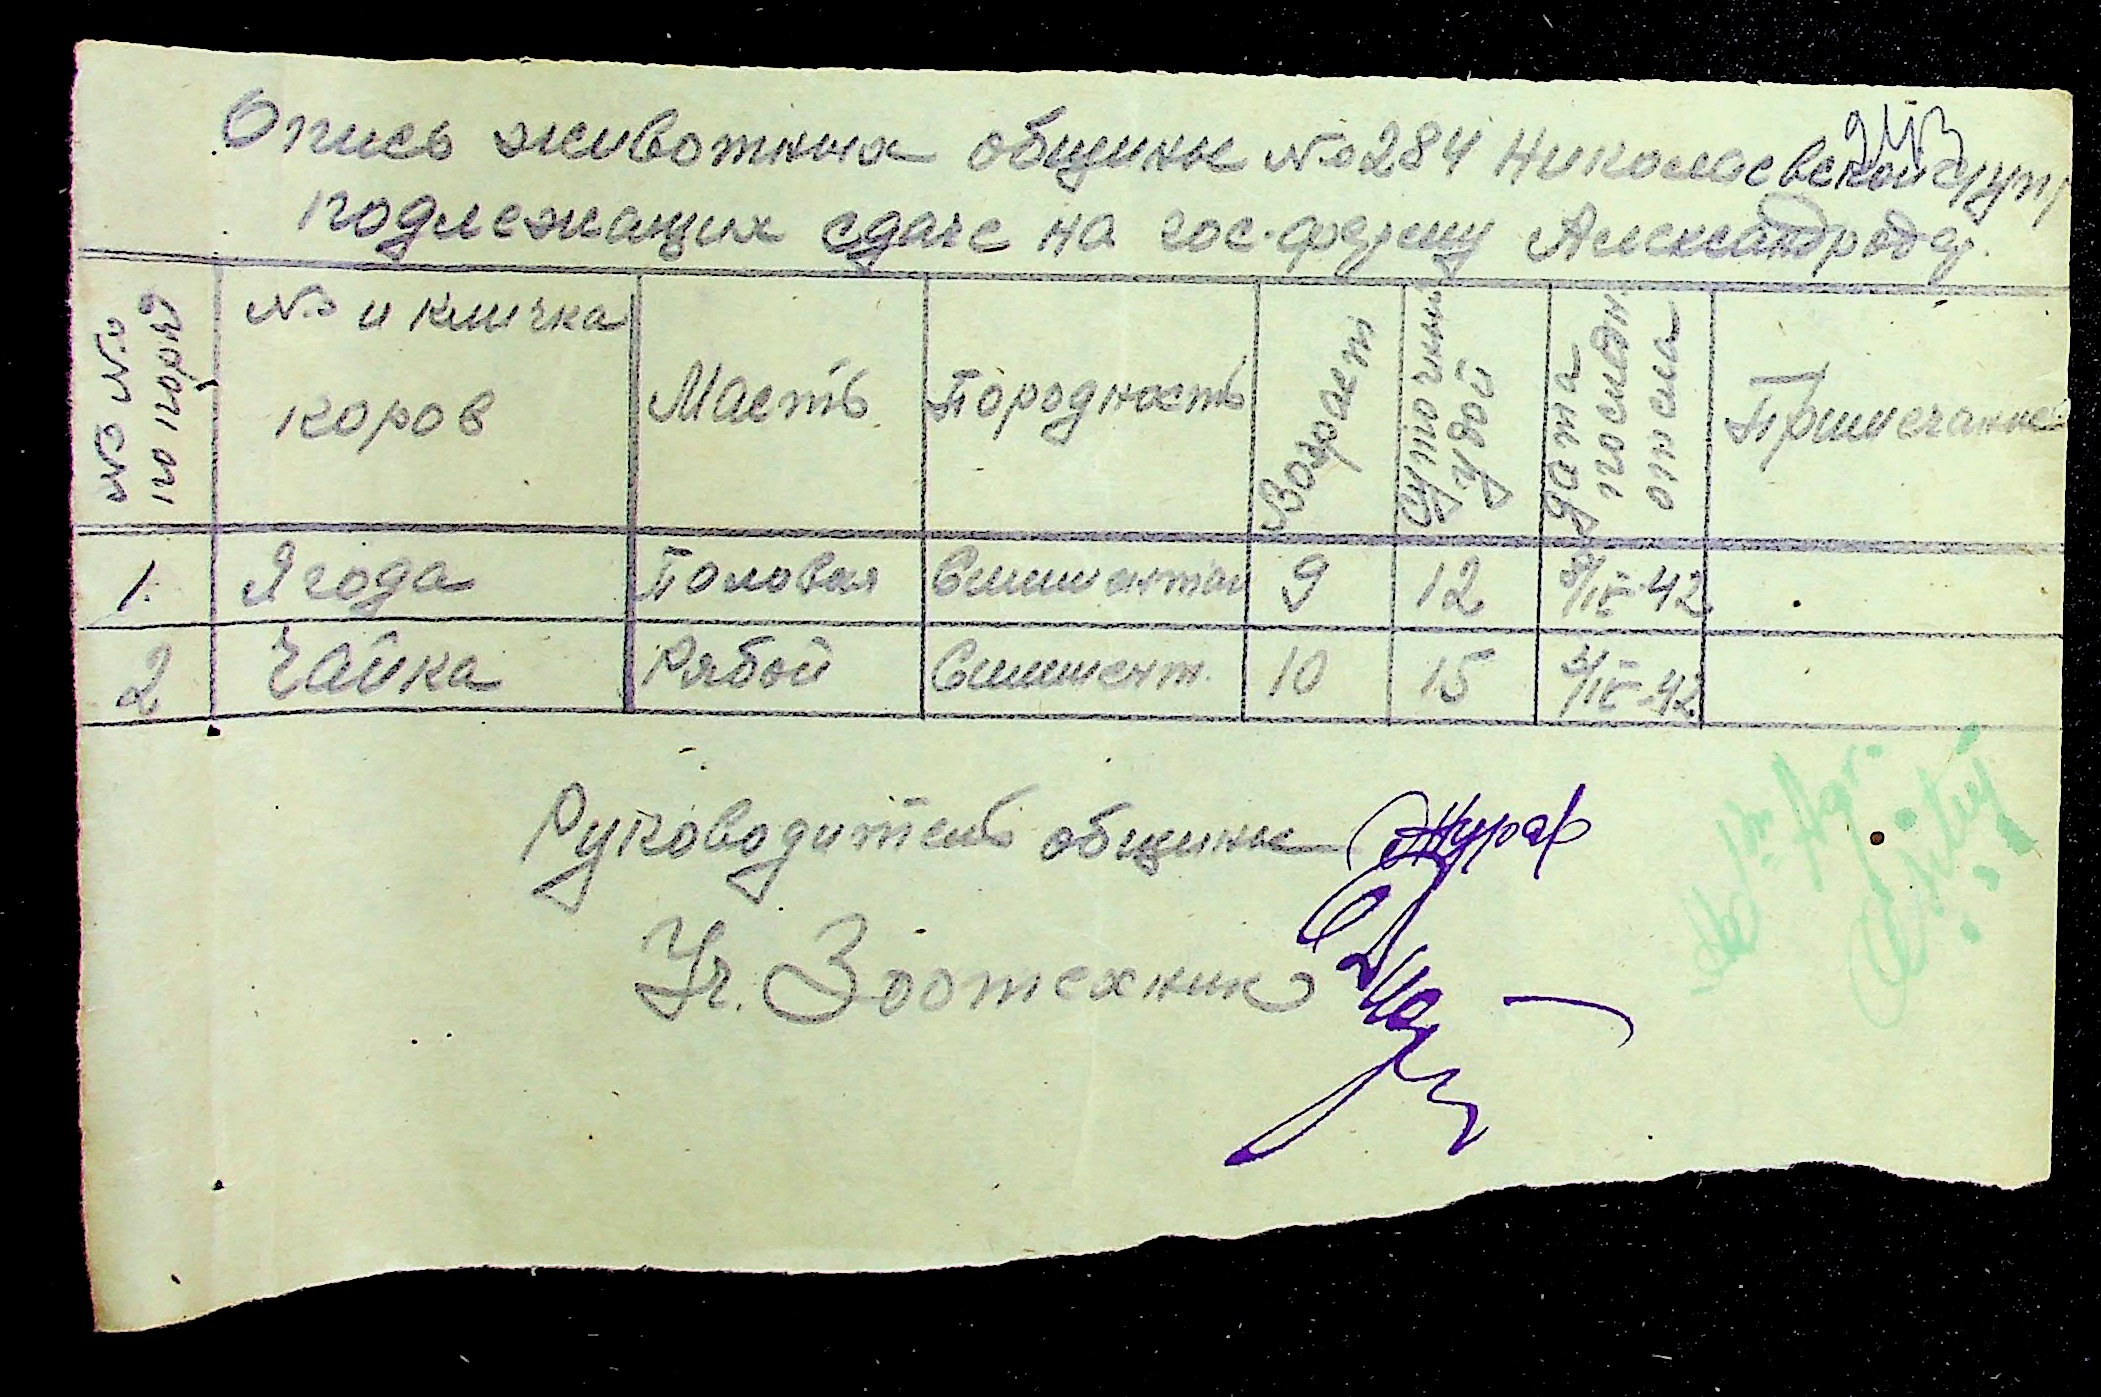 Опись животных общины №284 Николаевской груп
подлежащих сдаче на гос. ферму Александродар.
№ №
по поряд
№ и кличка
коров
Масть
Породность
Возраст
Суточный
удой
Дата
последн.
отела
Примечание
1. Ягода Половая Симментал 9 12 /IV-42
2 Чайка Рябой Симмент. 10 15 /IV-42
Руководитель общины Журав
Уч. Зоотехник